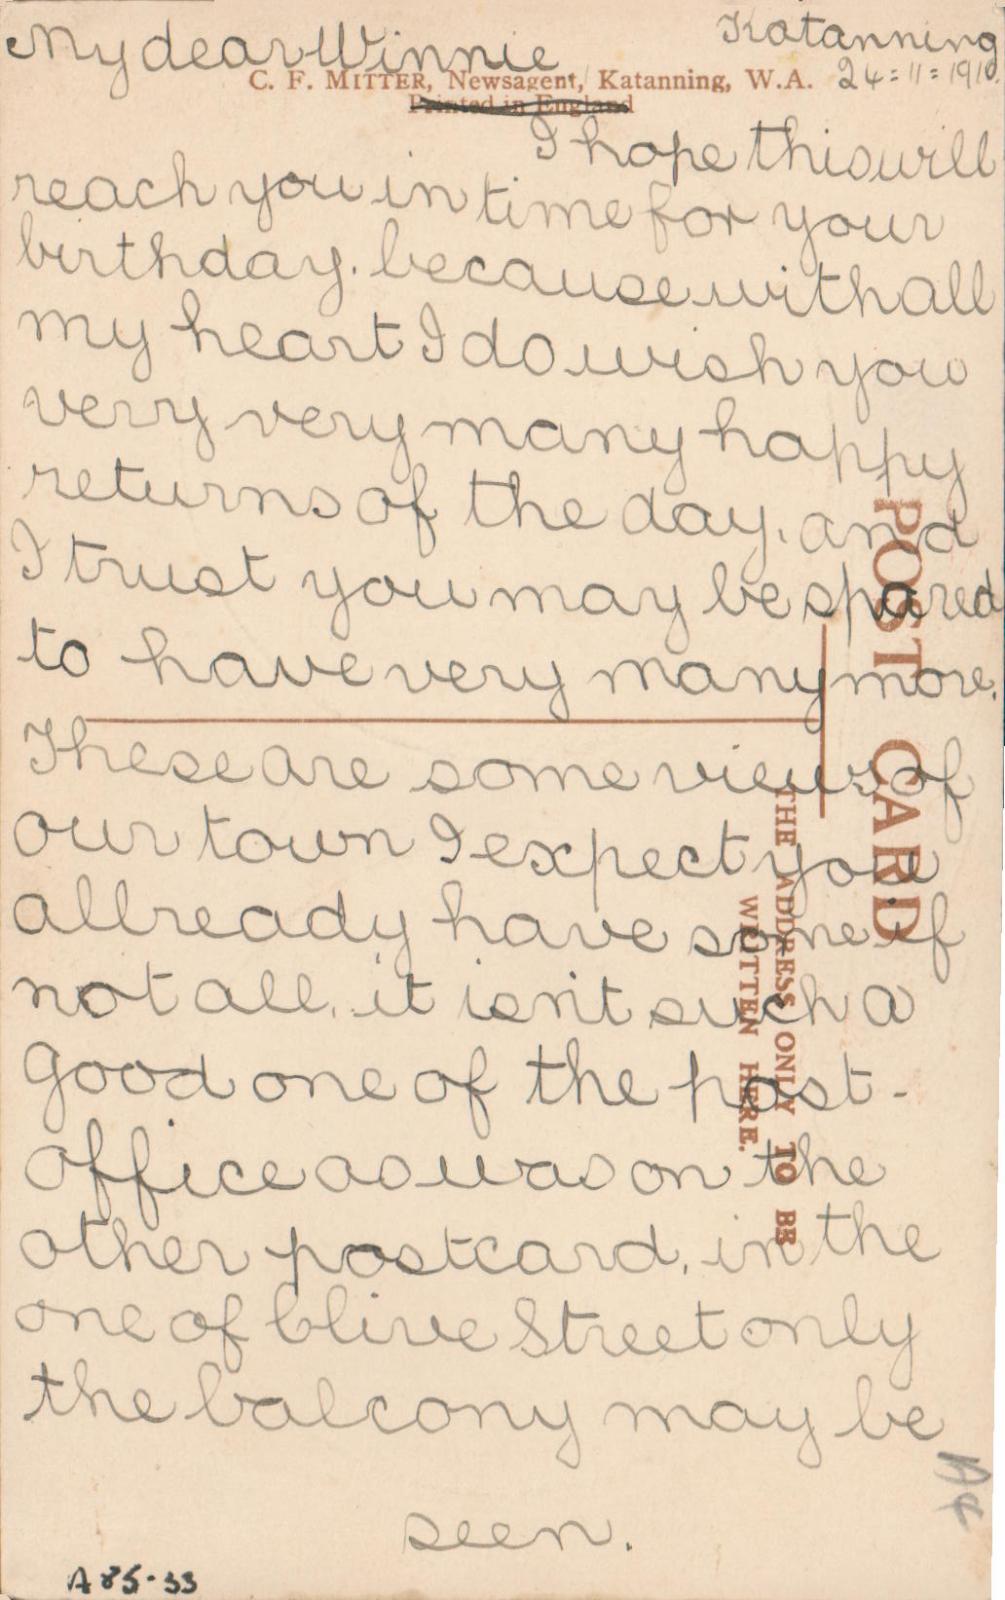 My dear Winnie
Katanning
24=11=1910
C. F. MITTER, Newsagent, Katanning, W.A.
Printed in England
I hope this will
reach you in time for your
birthday. because with all
my heart I do wish you
very very many happy
returns of the day. and
I trust you may be spared
to have very many more.
These are some views of
our town I expect you
allready have some if
not all. it isn't such a
good one of the post-
office as was on the
other postcard. in the
one of Clive Street only
the balcony may be
seen.
POST CARD
THE ADDRESS ONLY TO BE
WRITTEN HERE.
A85-33